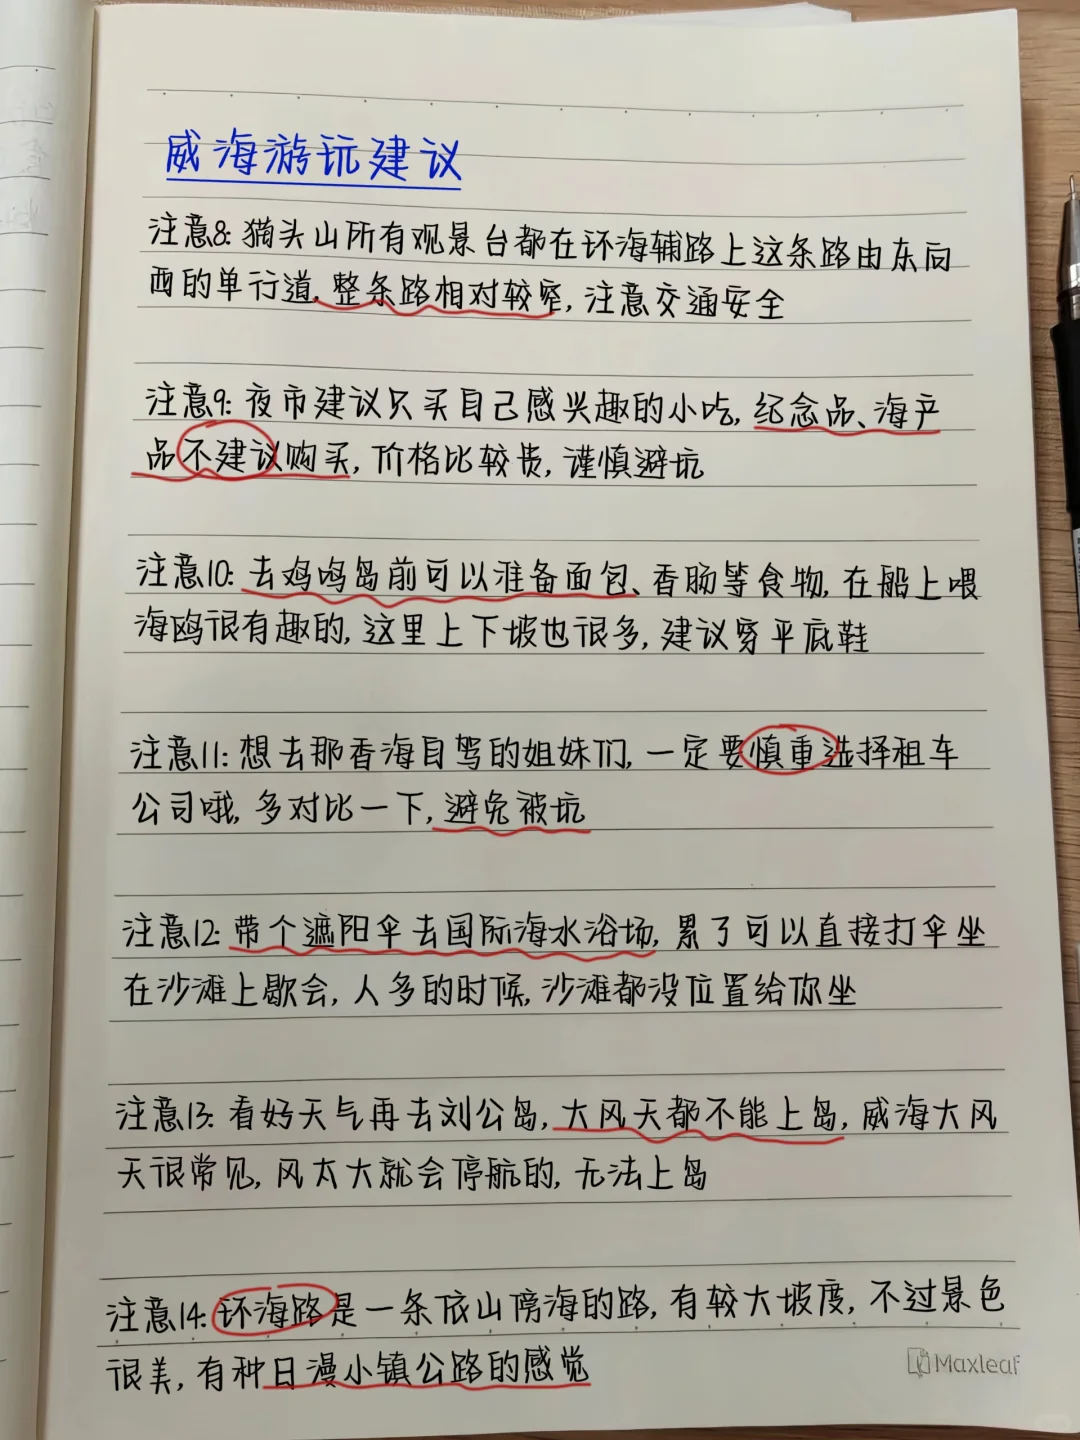 威海游玩建议
注意8: 猫头山所有观景台都在环海辅路上这条路由东向
西的单行道, 整条路相对较窄, 注意交通安全
注意9: 夜市建议只买自己感兴趣的小吃, 纪念品、海产
品不建议购买, 价格比较贵, 谨慎避坑
注意10: 去鸡鸣岛前可以准备面包、香肠等食物, 在船上喂
海鸥很有趣的, 这里上下坡也很多, 建议穿平底鞋
注意11: 想去那香海自驾的姐妹们, 一定要慎重选择租车
公司哦, 多对比一下, 避免被坑
注意12: 带个遮阳伞去国际海水浴场, 累了可以直接打伞坐
在沙滩上歇会, 人多的时候, 沙滩都没位置给你坐
注意13: 看好天气再去刘公岛, 大风天都不能上岛, 威海大风
天很常见, 风太大就会停航的, 无法上岛
注意14: 环海路是一条依山傍海的路, 有较大坡度, 不过景色
很美, 有种日漫小镇公路的感觉
Maxleaf